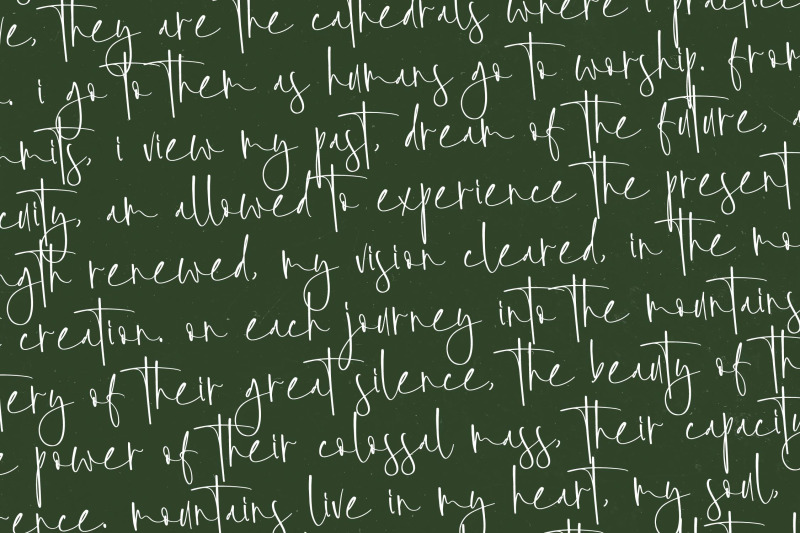 ve, they are the cathedrals where i practice
. i go to them as humans go to worship. from
mmits, i view my past, dream of the future, a
cuity, am allowed to experience the present
ngth renewed, my vision cleared, in the mo
creation. on each journey into the mountains
ery of their great silence, the beauty of th
e power of their colossal mass, their capacity
ence. mountains live in my heart, my soul,